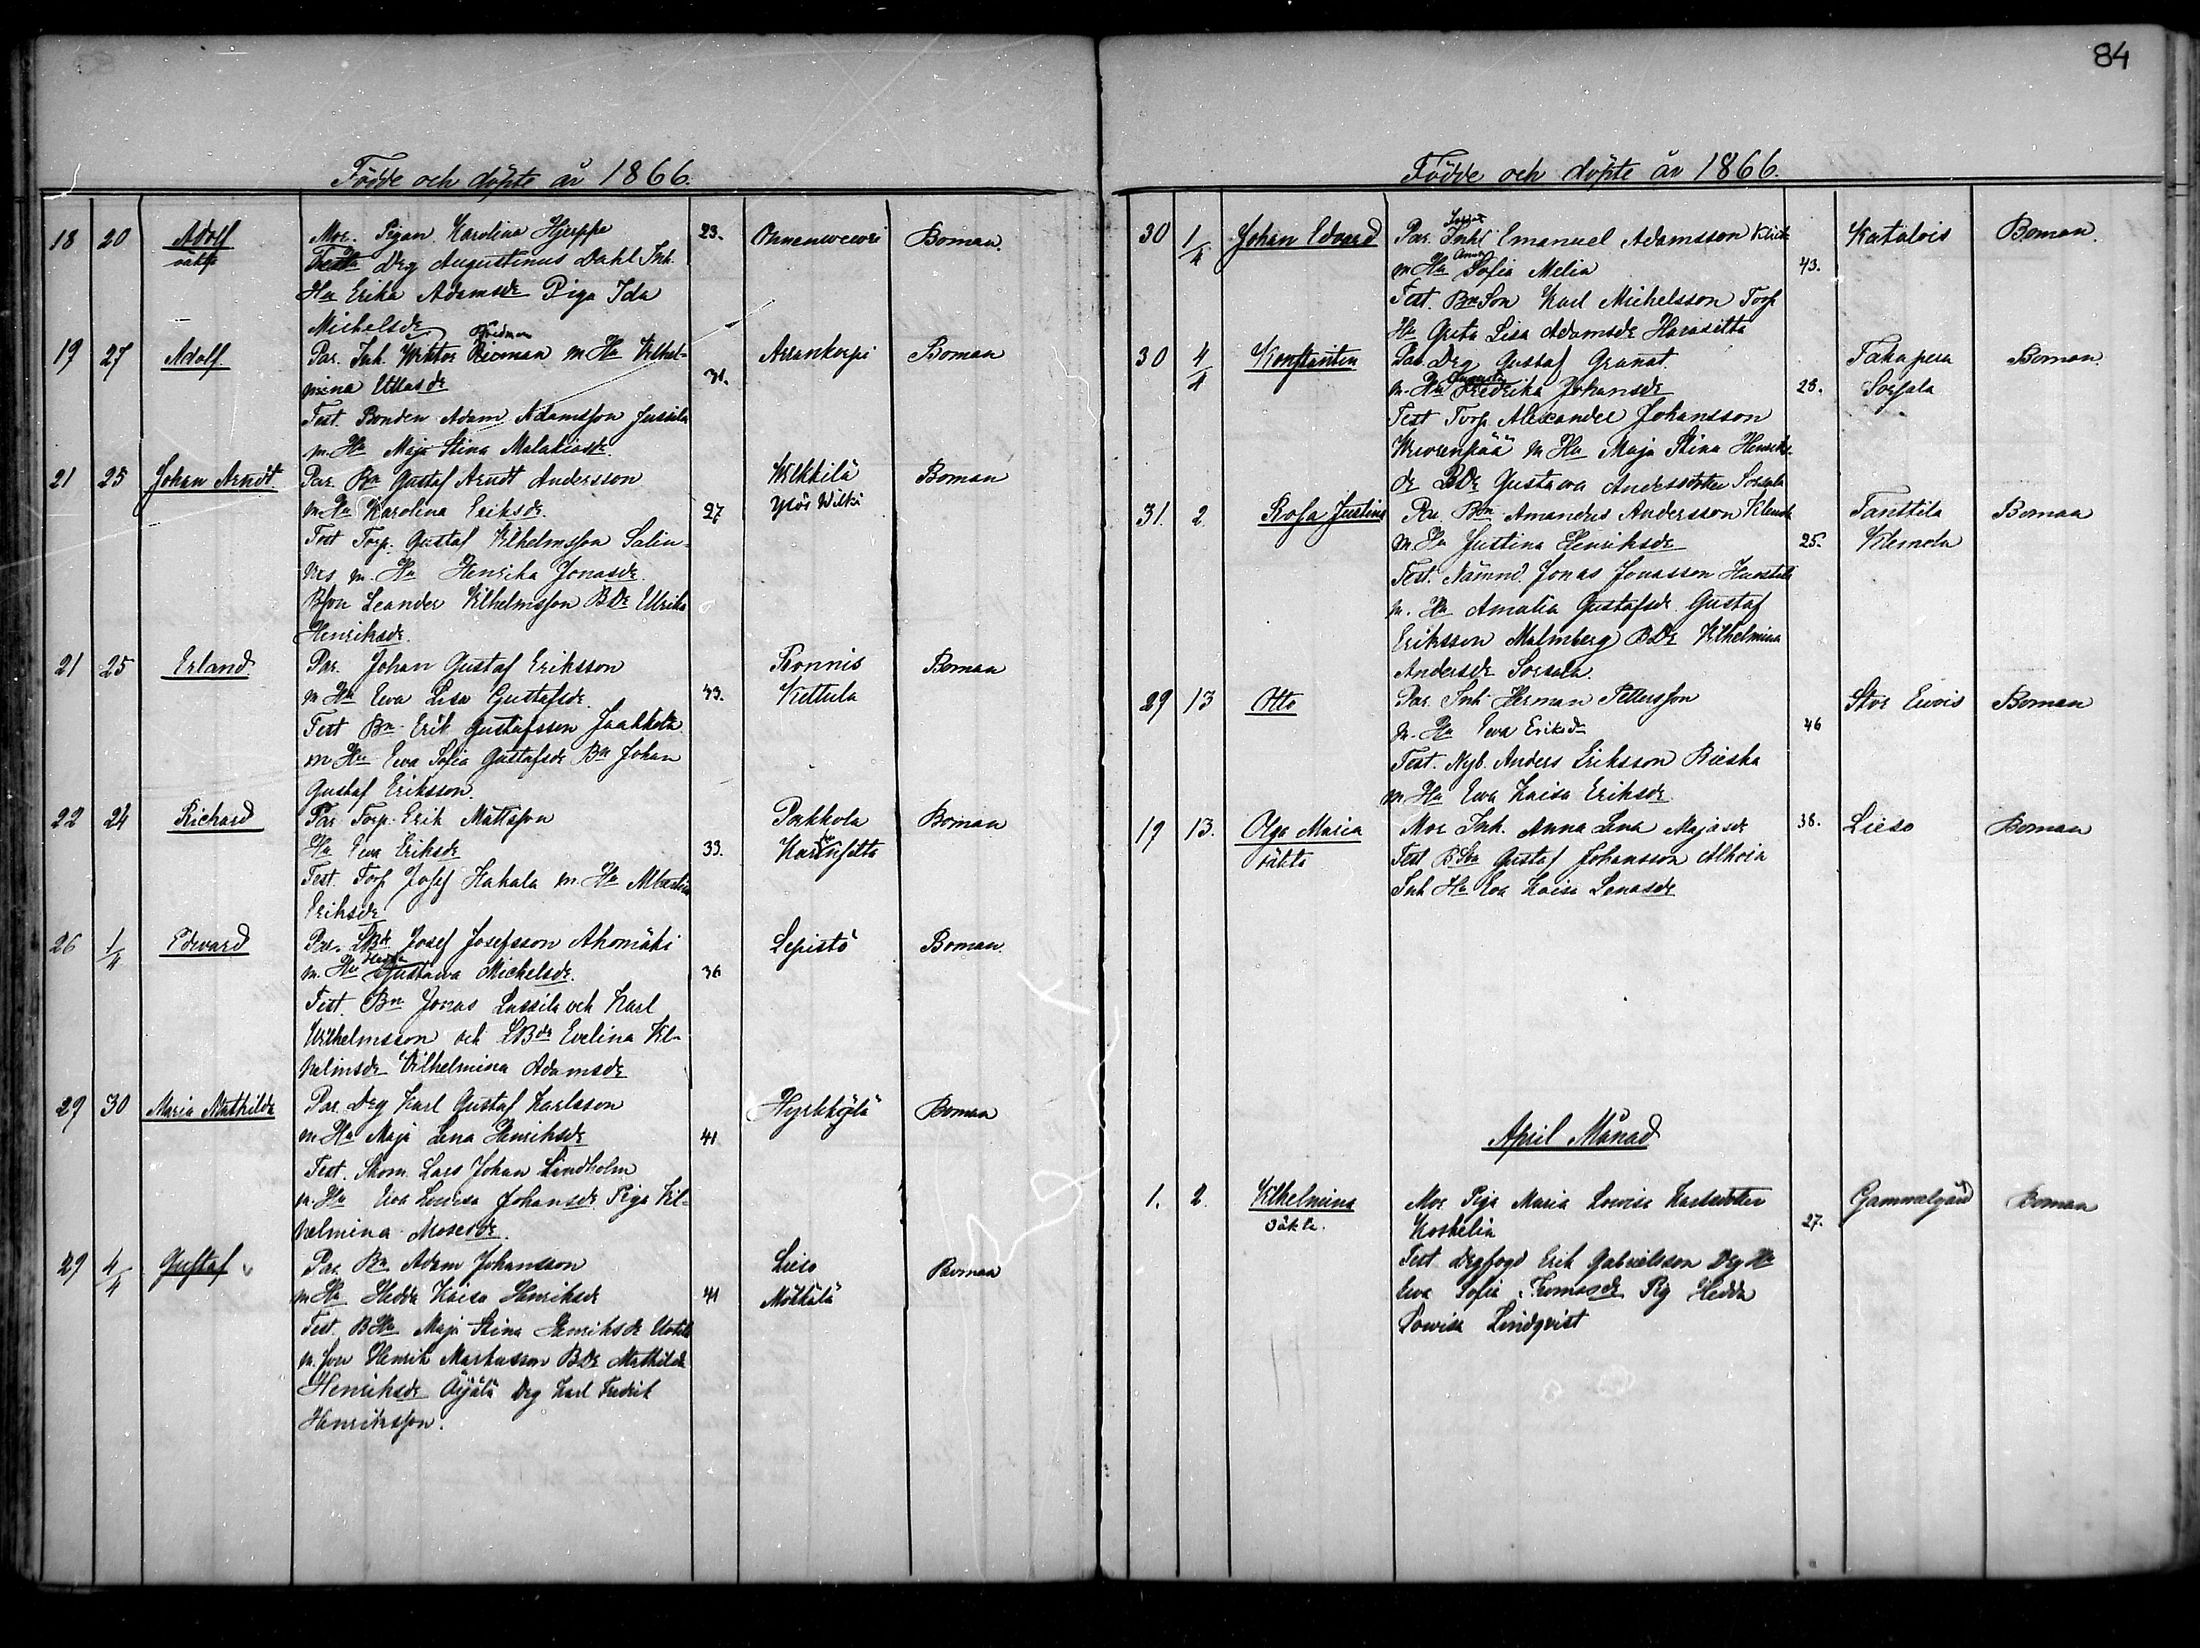 84
Födde och döpte år 1866.
18 20 Adolf Mor. Pigan Karolina Hjerppe 23. Boman.
oäkta Drg Augustinus Dahl Inh.
Hu Erika Adamsdr Piga Ida
Michelsdr
19 27 Adolf Par. Inh. Wiktor m Hu Vilhel- 31. Arrankorpi Boman
mina
Test. Bonden Adam Adamsson Jussila
m. Hu Maja Stina
21 25 Johan Arndt Par. Bn Gustaf Arndt Andersson Wilkkilä Boman
m Hu Karolina Eriksdr. 27
Test Torp. Gustaf Wilhelmsson Salin-
m. Hu Henrika Jonasdr.
Bson Leander Wilhelmsson BDr Ulrika
Henriksdr.
21 25 Erland. Par. Johan Gustaf Eriksson Ronnis Boman
m Hu Eva Lisa Gustafsdr. 43. Kettula
Test Bn Erik Gustafsson Jaakkola
m Hu Eva Sofia Gustafsdr Bn Johan
Gustaf Eriksson.
22 24 Richard Par Torp. Erik Mattsson Porkkola Boman
Hu Eva Eriksdr 33.
Test. Torp Josef Hakala m. Hu Albertina
Eriksdr
26 1/4 Edward Par. Josef Josefsson Ahomäki Lepistö Boman.
m. Hu Gustawa Michelsdr. 36
Test. Bn Jonas Lassila och Karl
Wilhelmsson och Evelina Vil-
helmsdr Vilhelmina Adamsdr
29 30 Maria Mathilda Par. Drg Karl Gustaf Karlsson Boman
m Hu Maja Lena Henriksdr 41
Test. Skom. Lars Johan Lindholm
m. Hu Eva Lovisa Johansdr Piga Vil-
helmina Mosesdr.
29 4/4 Gustaf Par. Bn Adam Johansson Lieso Boman
m Hu Hedda Kaisa Henriksdr 41 Möttölä
Test. BHu Maja Stina Henriksdr Uotila
m. son Henrik Markusson BDr Mathilda
Henriksdr Äijälä Drg Karl Fredrik
Henriksson.
Födde och döpte år 1866.
30 1/4 Johan Edvard Par. Inh Emanuel Adamsson Katalois Boman.
m Hu Anna Sofia Melia 43.
Test. BnSon Karl Michelsson Torp
Hu Greta Lisa Adamsdr
30 4/4 Konstantin Par. Drg Gustaf Granat. Takapera Boman.
m. Hu Fredrika Johansdr 28. Sorsala
Test Torp Alexander Johansson
m Hu Maja Stina Henriks-
dr BDr Gustava Andersdotter Sorsala
31. 2. Rosa Justina Par Bn Amandus Andersson Tanttila Boman
m. Hu Justina Henriksdr 25.
Test. Nämnd. Jonas Jonasson
m. Hu Amalia Gustafsdr. Gustaf
Eriksson Malmberg BDr Wilhelmina
Andersdr Sorsala.
29 13 Otto Par. Inh Herman Pettersson Stor Evois Boman
m. Hu Eva Eriksdr 46
Test. Nyb. Anders Eriksson Rieska
m Hu Eva Kaisa Eriksdr
19 13. Olga Maria Mor Inh. Anna Lena 38. Lieso Boman
oäkta Test BSon Gustaf Johansson Alhoia
Inh Hu Eva Kaisa
April Månad
1. 2. Wilhelmina Mor Piga Maria Lovisa Karlsdotter Gammelgård Boman
oäkta. Koskelin 27.
Test Drgfogd Erik Gabrielsson Drg Hu
Eva Sofia Thomasdr Pig Hedda
Lovisa Lindqvist